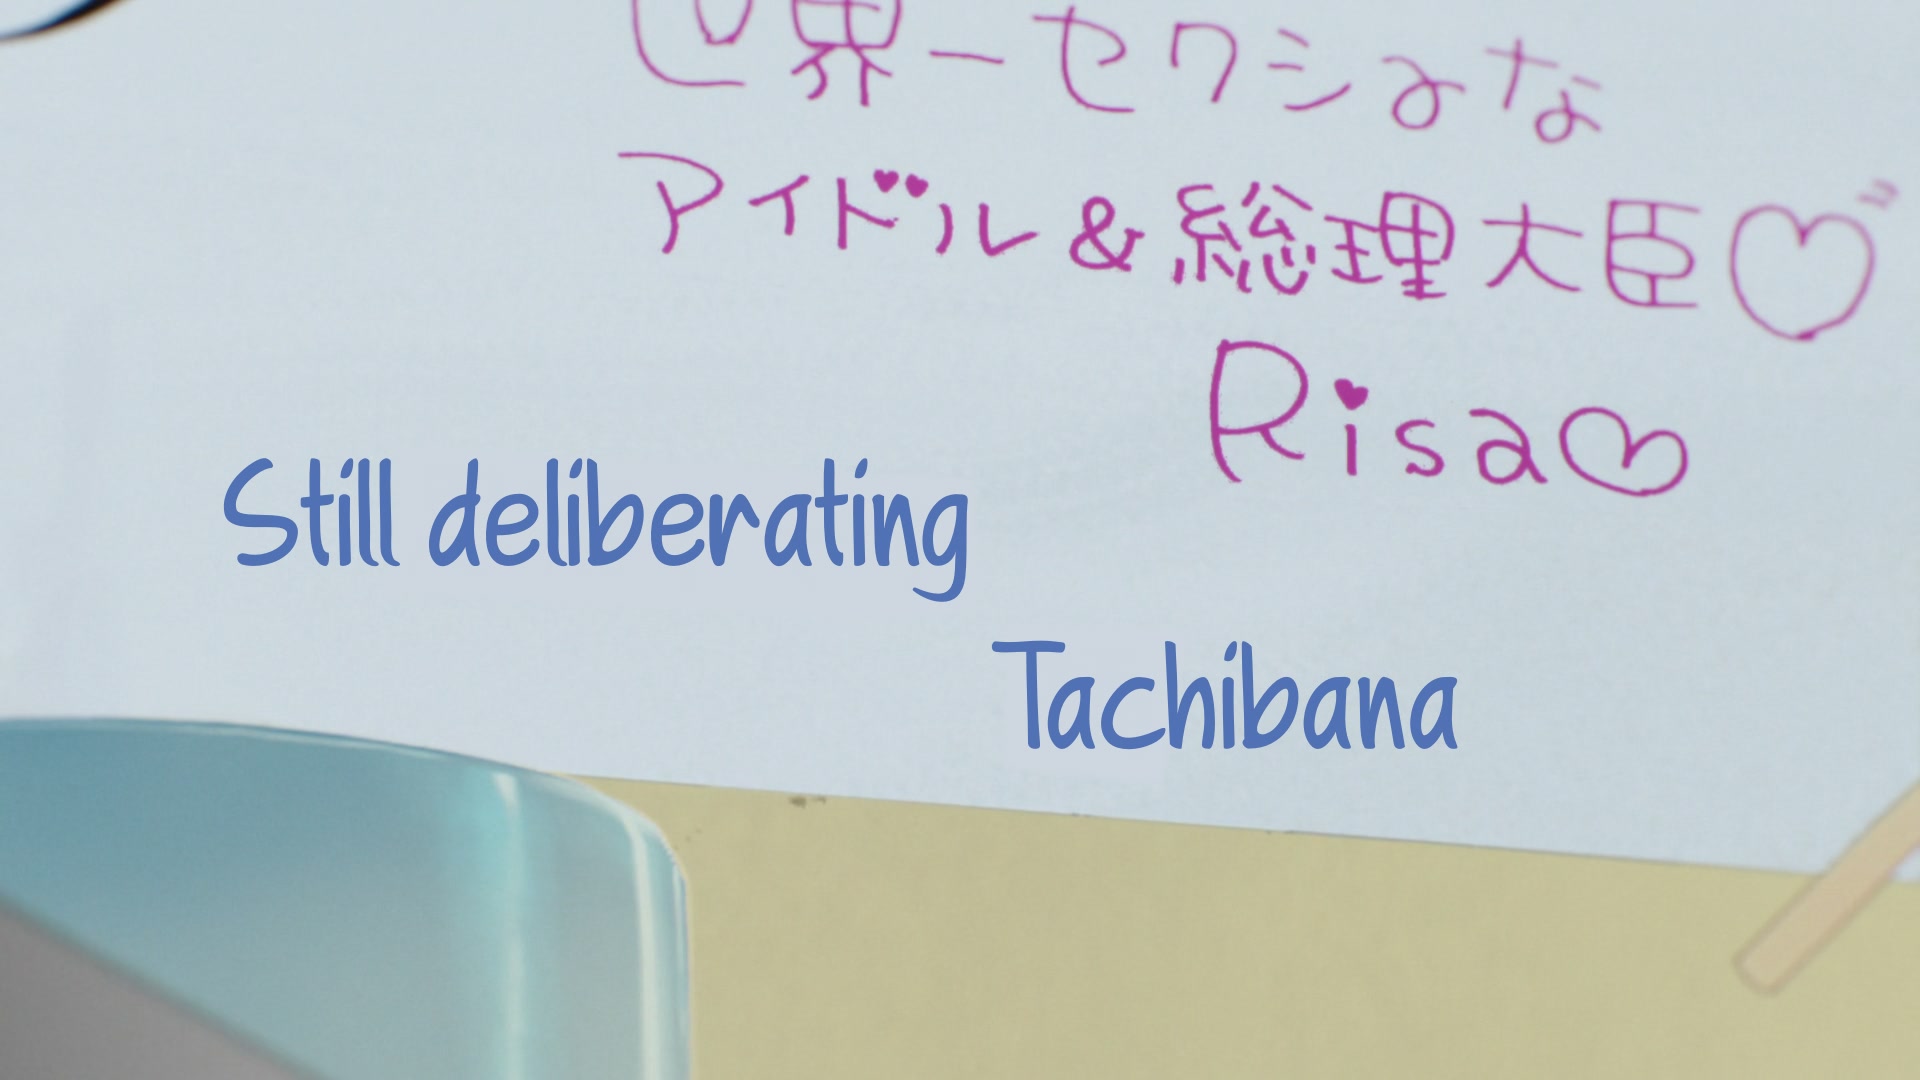 世界一セクシィな
アイドル&総理大臣♡
Risa♡
Still deliberating
Tachibana